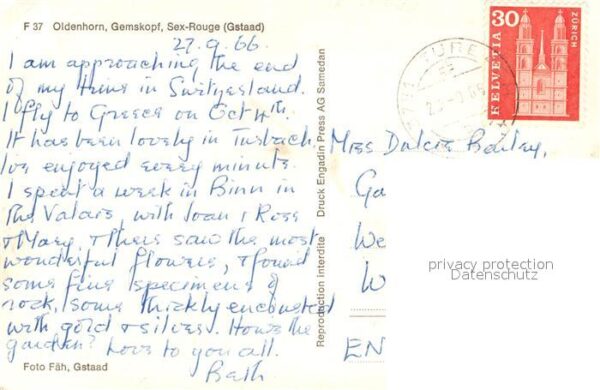 F 37 Oldenhorn, Gemskopf, Sex-Rouge (Gstaad)
27.9.66
I am approaching the end
of my time in Switzerland.
I fly to Greece on Oct 4th.
It has been lovely in Turbach
I've enjoyed every minute.
I spent a week in Binn in
the Valais, with Joan & Rose
& Mary, & there saw the most
wonderful flowers, & found
some fine specimens of
rock, some thickly encrusted
with gold & silver. How's the
garden? Love to you all.
Beth
Foto Fäh, Gstaad
Reproduction interdite
Druck Engadin Press AG Samedan
30
HELVETIA
ZÜRICH
Miss Dulcie Bailey,
Ga
We
W
EN
privacy protection
Datenschutz